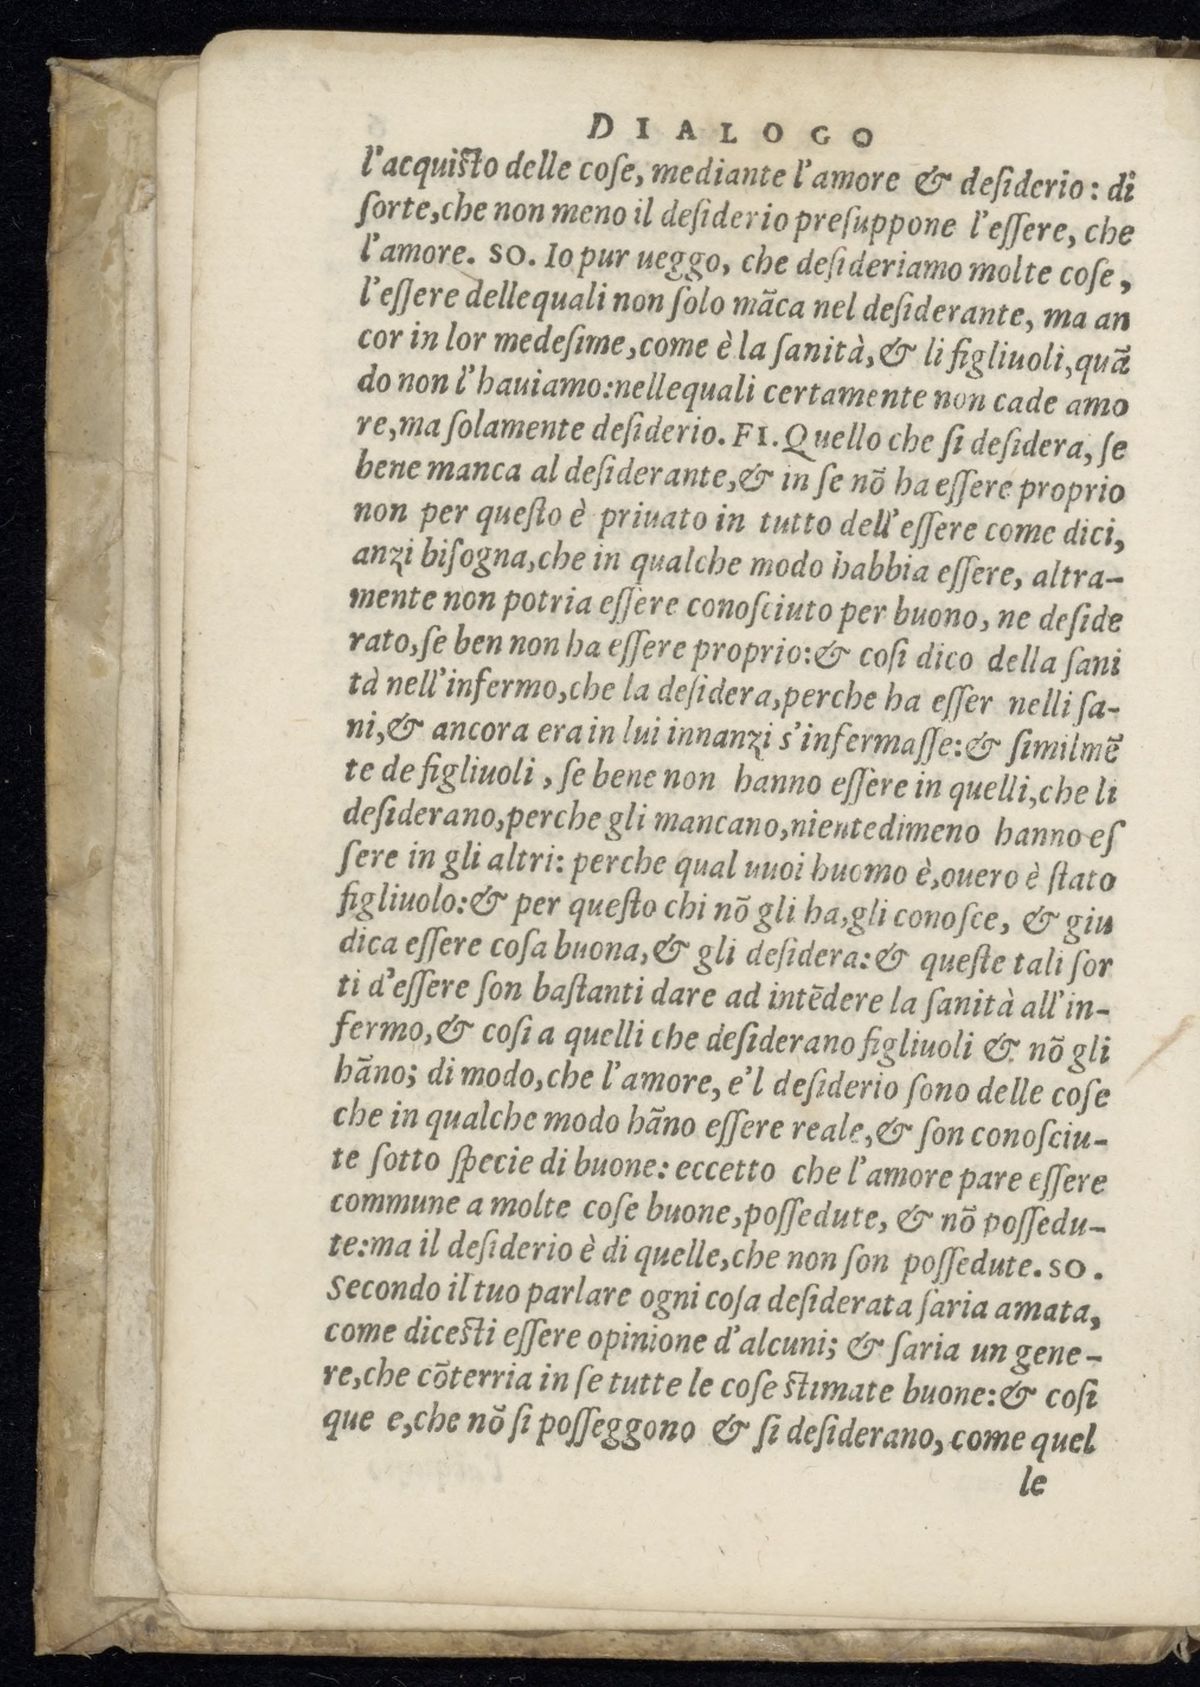 DIALOGO
l'acquisto delle coſe, mediante l'amore & deſiderio: di
ſorte, che non meno il deſiderio preſuppone l'eſſere, che
l'amore. SO. Io pur ueggo, che deſideriamo molte coſe,
l'eſſere dellequali non ſolo mãca nel deſiderante, ma an
cor in lor medeſime, come è la ſanità, & li figliuoli, quã
do non l'hauiamo: nellequali certamente non cade amo
re, ma ſolamente deſiderio. FI. Quello che ſi deſidera, ſe
bene manca al deſiderante, & in ſe nõ ha eſſere proprio
non per queſto è priuato in tutto dell'eſſere come dici,
anzi biſogna, che in qualche modo habbia eſſere, altra-
mente non potria eſſere conoſciuto per buono, ne deſide
rato, ſe ben non ha eſſere proprio: & coſi dico della ſani
tà nell'infermo, che la deſidera, perche ha eſſer nelli ſa-
ni, & ancora era in lui innanzi s'infermaſſe: & ſimilmẽ
te de figliuoli, ſe bene non hanno eſſere in quelli, che li
deſiderano, perche gli mancano, nientedimeno hanno eſ
ſere in gli altri: perche qual uuoi huomo è, ouero è ſtato
figliuolo: & per queſto chi nõ gli ha, gli conoſce, & giu
dica eſſere coſa buona, & gli deſidera: & queſte tali ſor
ti d'eſſere ſon baſtanti dare ad intẽdere la ſanità all'in-
fermo, & coſi a quelli che deſiderano figliuoli & nõ gli
hãno; di modo, che l'amore, e'l deſiderio ſono delle coſe
che in qualche modo hãno eſſere reale, & ſon conoſciu-
te ſotto ſpecie di buone: eccetto che l'amore pare eſſere
commune a molte coſe buone, poſſedute, & nõ poſſedu-
te: ma il deſiderio è di quelle, che non ſon poſſedute. SO.
Secondo il tuo parlare ogni coſa deſiderata ſaria amata,
come diceſti eſſere opinione d'alcuni; & ſaria un gene-
re, che cõterria in ſe tutte le coſe ſtimate buone: & coſi
que e, che nõ ſi poſſeggono & ſi deſiderano, come quel
le